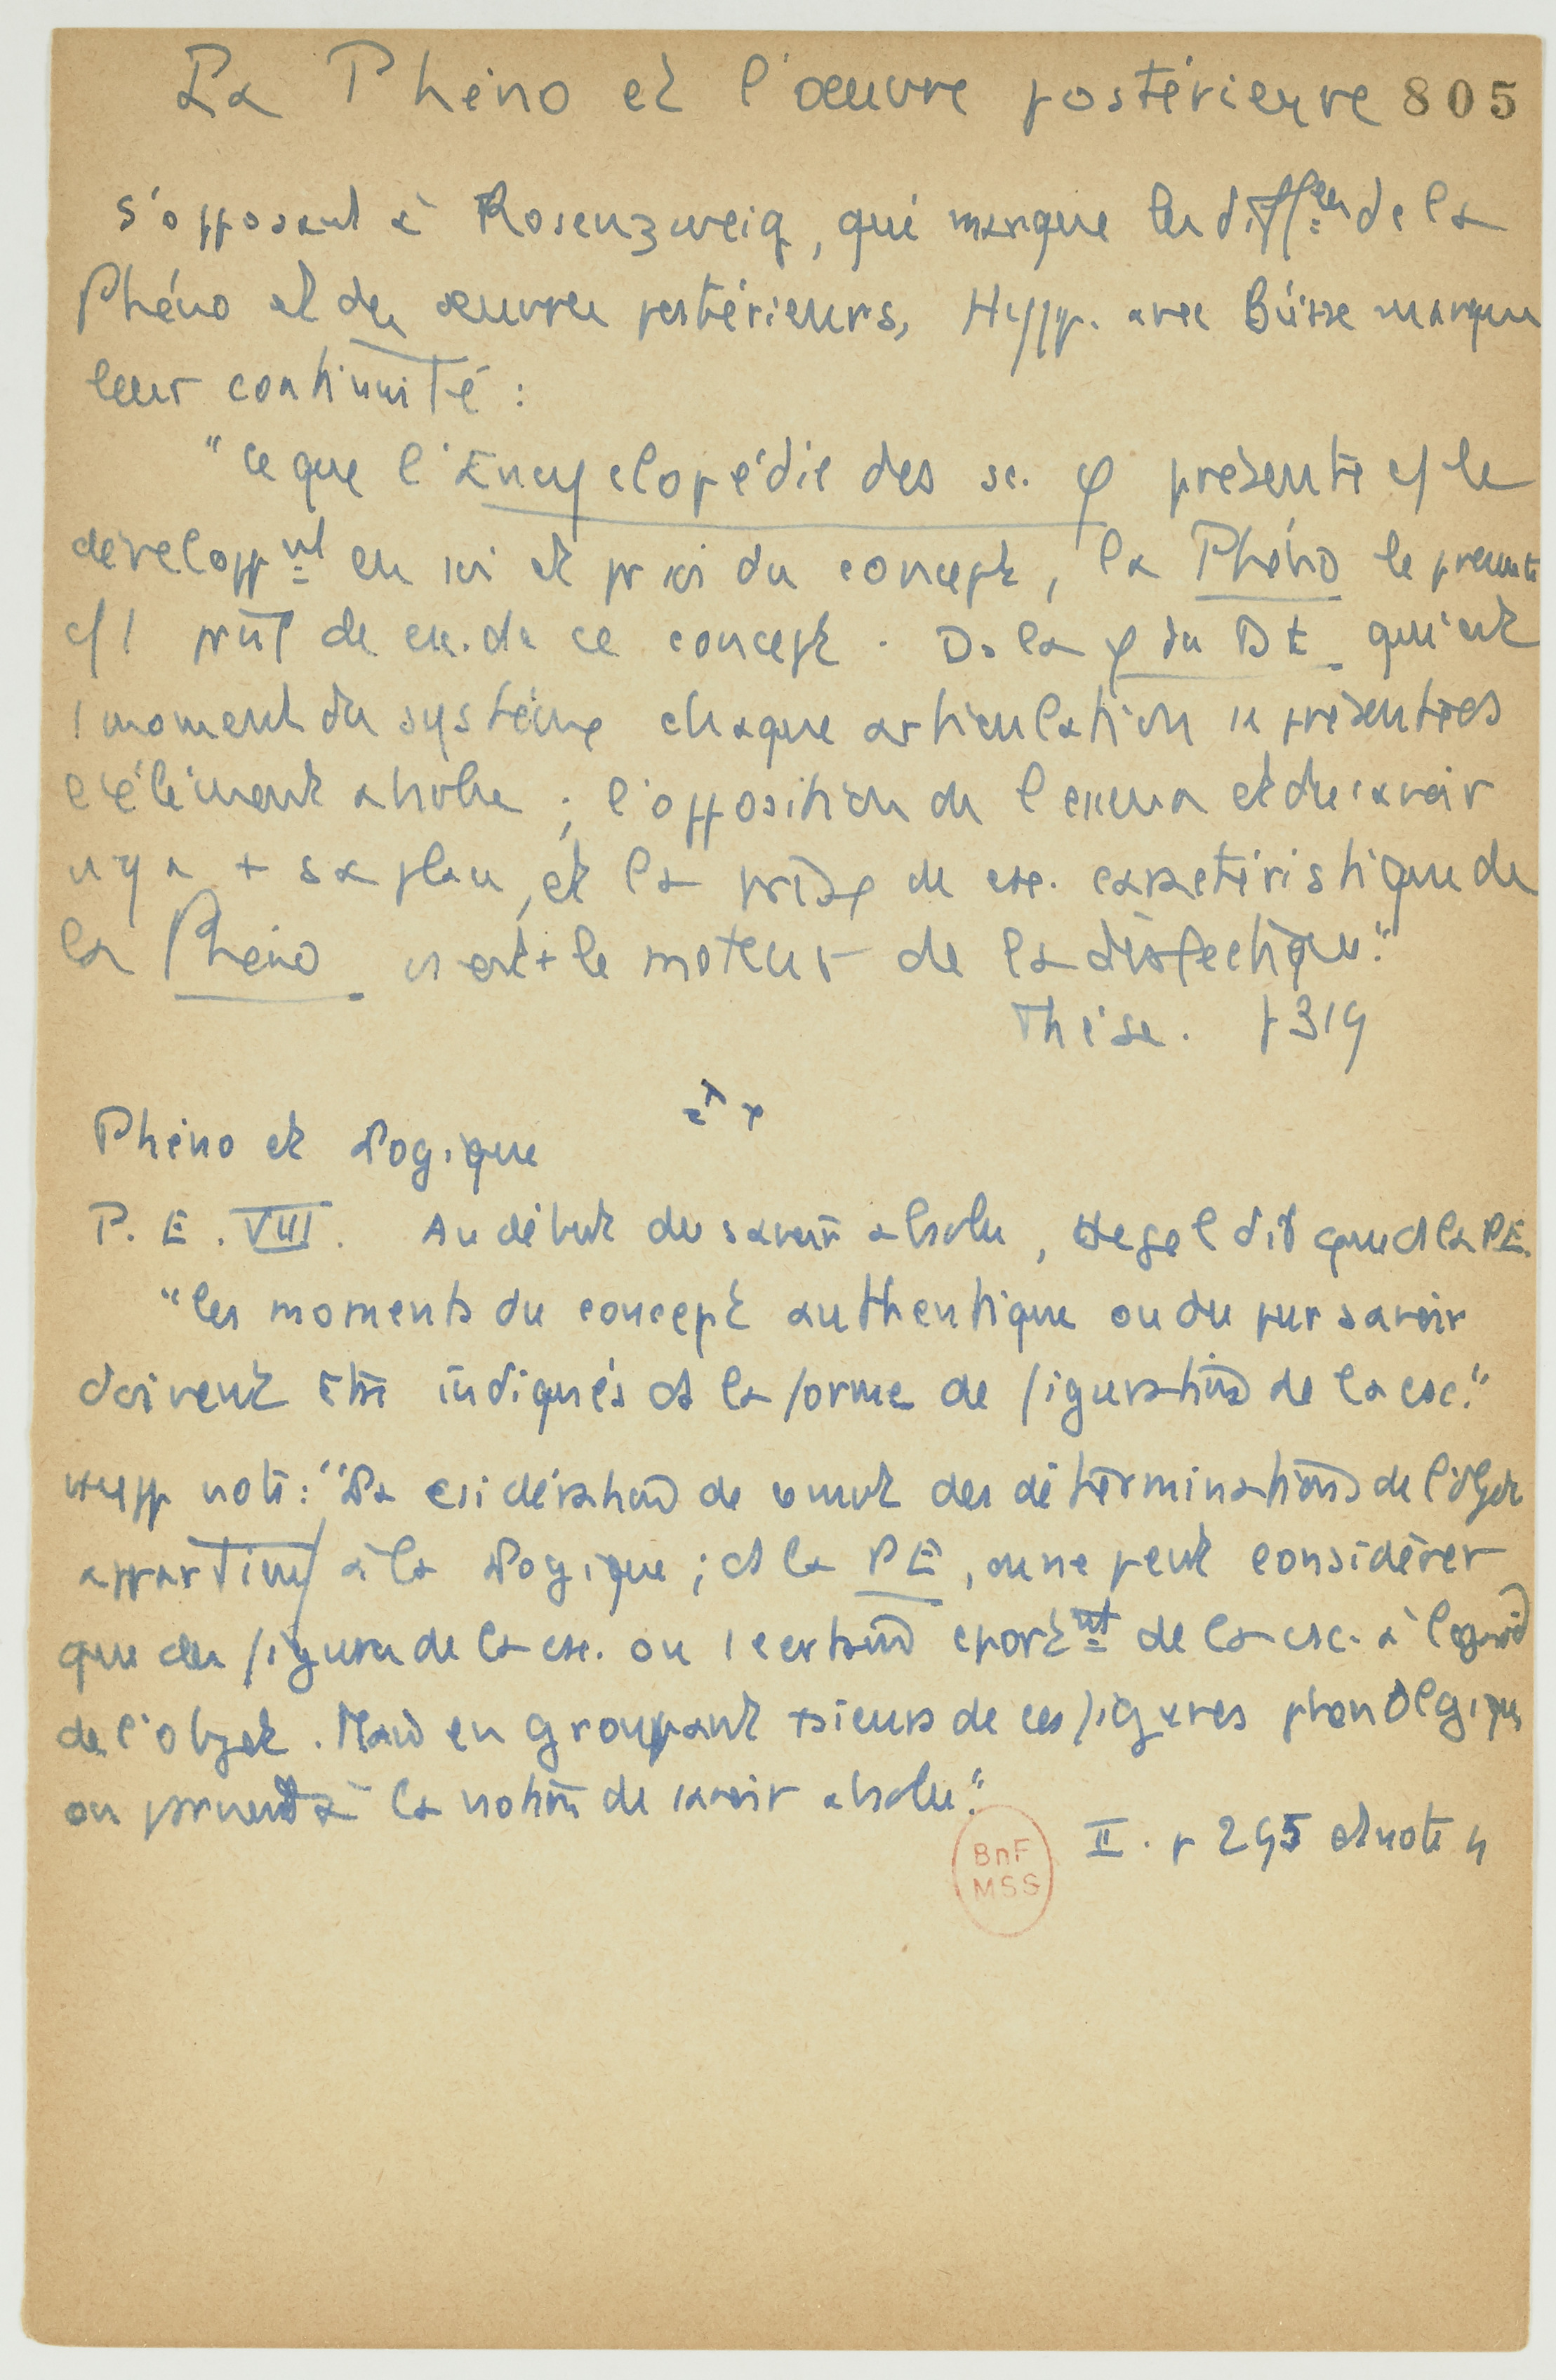 La Phéno et l'œuvre postérieure 805
s'opposant à Rosenzweig, qui marque les diff^ces de la
Phéno et des œuvres postérieurs, Hypp. avec Büsse marque
leur continuité :
"Ce que l'Encyclopédie des sc. φ présente c/ le
developp^nt en soi et pr soi du concept, la Phéno le présente
c/ 1 prise de csc. de ce concept. Ds la φ du DE qui est
1 moment du système chaque articulation se présente ds
l'élément absolu ; l'opposition de l'essence et du savoir
n'y a + sa place, et la prise de csc. caractéristique de
la Phéno n'est + le moteur de la dialectique."
Thèse. p 319
Phéno et Logique
P. E. VIII. Au début du savoir absolu, Hegel dit que ds la PE.
"les moments du concept authentique ou du pur savoir
doivent être indiqués ds la forme de figurations de la csc."
Hypp note : "La csidération de des déterminations de l'objet
appartient à la Logique ; ds la PE, on ne peut considérer
que des figures de la csc. ou 1 certain cport^nt de la csc. à l'égard
de l'objet. Mais en groupant +sieurs de ces figures phenolgiques
on parvient à la notion de savoir absolu."
II. p 295 et note 4
BnF
MSS